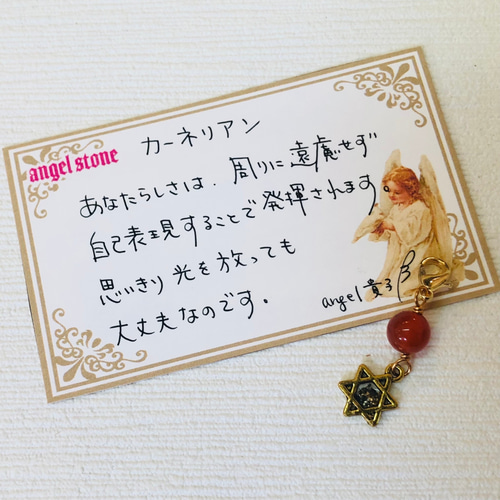 angel stone
カーネリアン
あなたらしさは、周りに遠慮せず
自己表現することで発揮されます
思いきり光を放っても
大丈夫なのです。
angel 貴子β